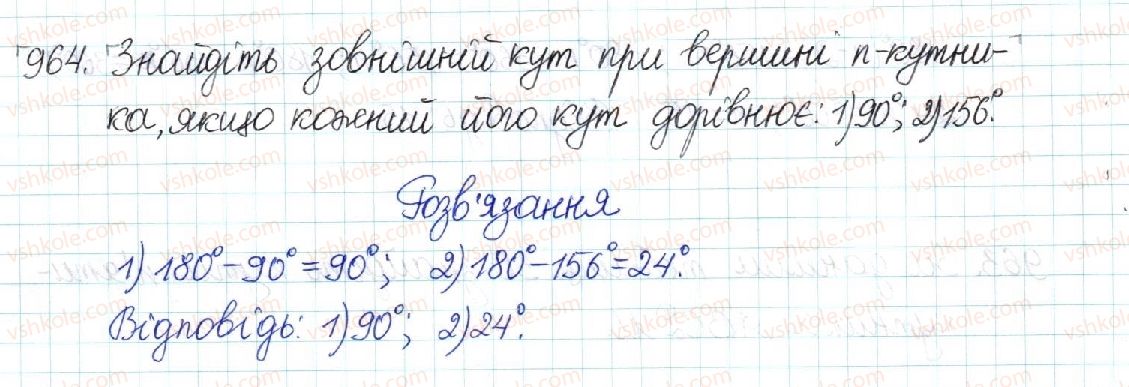 964. Знайдіть зовнішній кут при вершині n-кутни-
ка, якщо кожний його кут дорівнює: 1) 90°; 2) 156°.
Розв'язання
1) 180° - 90° = 90°; 2) 180° - 156° = 24°.
Відповідь: 1) 90°; 2) 24°.